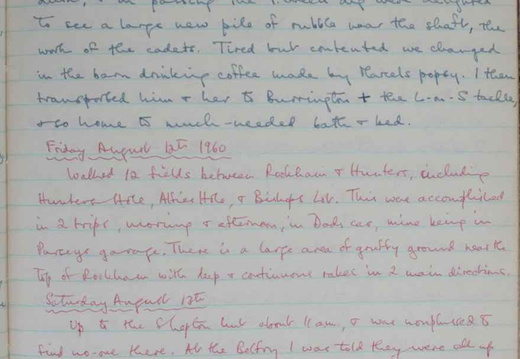 down, & on passing the Tween dig were delighted
to see a large new pile of rubble near the shaft, the
work of the cadets. Tired but contented we changed
in the barn drinking coffee made by Marcels popsy. I then
transported him & her to Burrington & the L-on-S tackle,
& so home to much-needed bath & bed.
Friday August 12th 1960
Walked 12 fields between Rookham & Hunters, including
Hunters Hole, Alfies Hole, & Bishops Lot. This was accomplished
in 2 trips, morning & afternoon, in Dads car, mine being in
garage. There is a large area of gruffy ground near the
top of Rookham with deep & continuous rakes in 2 main directions.
Saturday August 13th
Up to the Shepton hut about 11am, & was nonplussed to
find no-one there. At the Belfry I was told they were all up